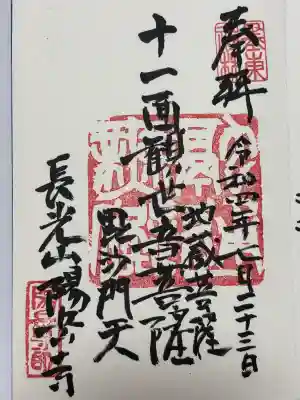 奉拝
令和四年七月二十三日
十一面觀世音菩薩
地蔵菩薩
毘沙門天
長光山陽岳寺